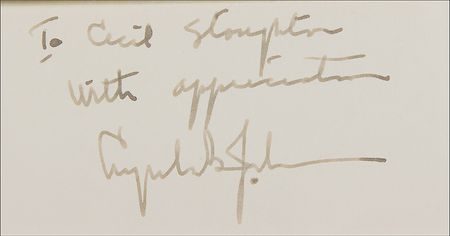 To Cecil Stoughton
With appreciation
Lyndon B. Johnson